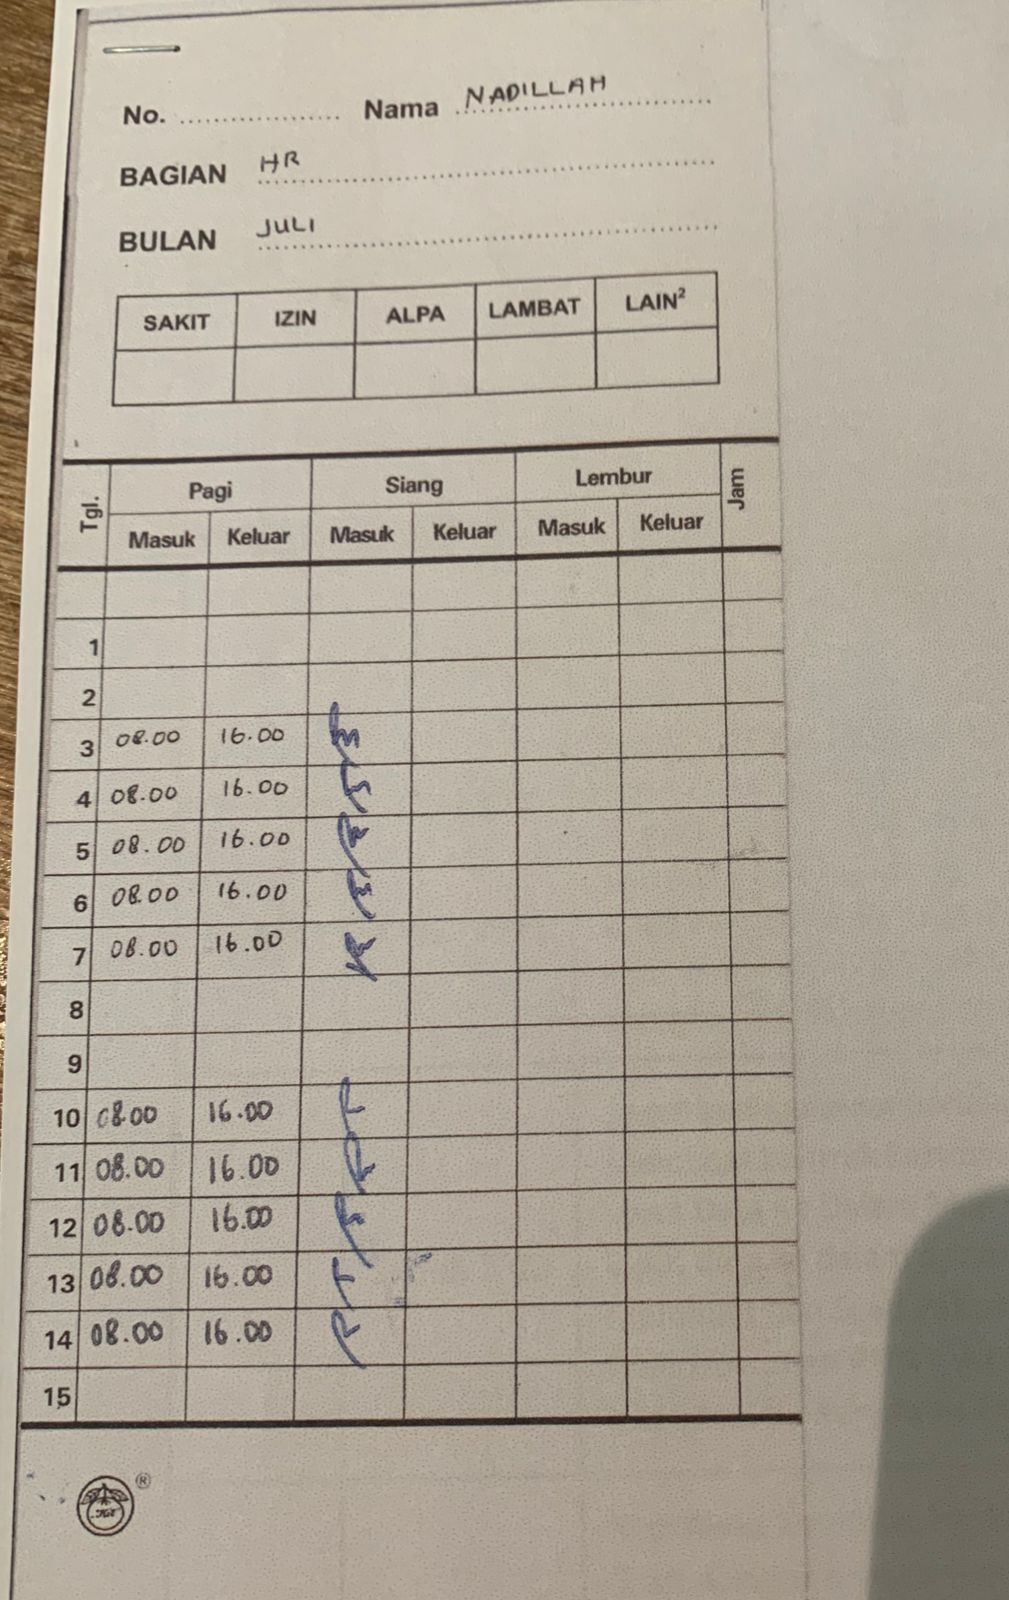 No. .................... Nama NADILLAH
BAGIAN HR
BULAN JULI
SAKIT IZIN ALPA LAMBAT LAIN²
Tgl. Pagi Siang Lembur Jam
Masuk Keluar Masuk Keluar Masuk Keluar
1
2
3 08.00 16.00
4 08.00 16.00
5 08.00 16.00
6 08.00 16.00
7 08.00 16.00
8
9
10 08.00 16.00
11 08.00 16.00
12 08.00 16.00
13 08.00 16.00
14 08.00 16.00
15
®